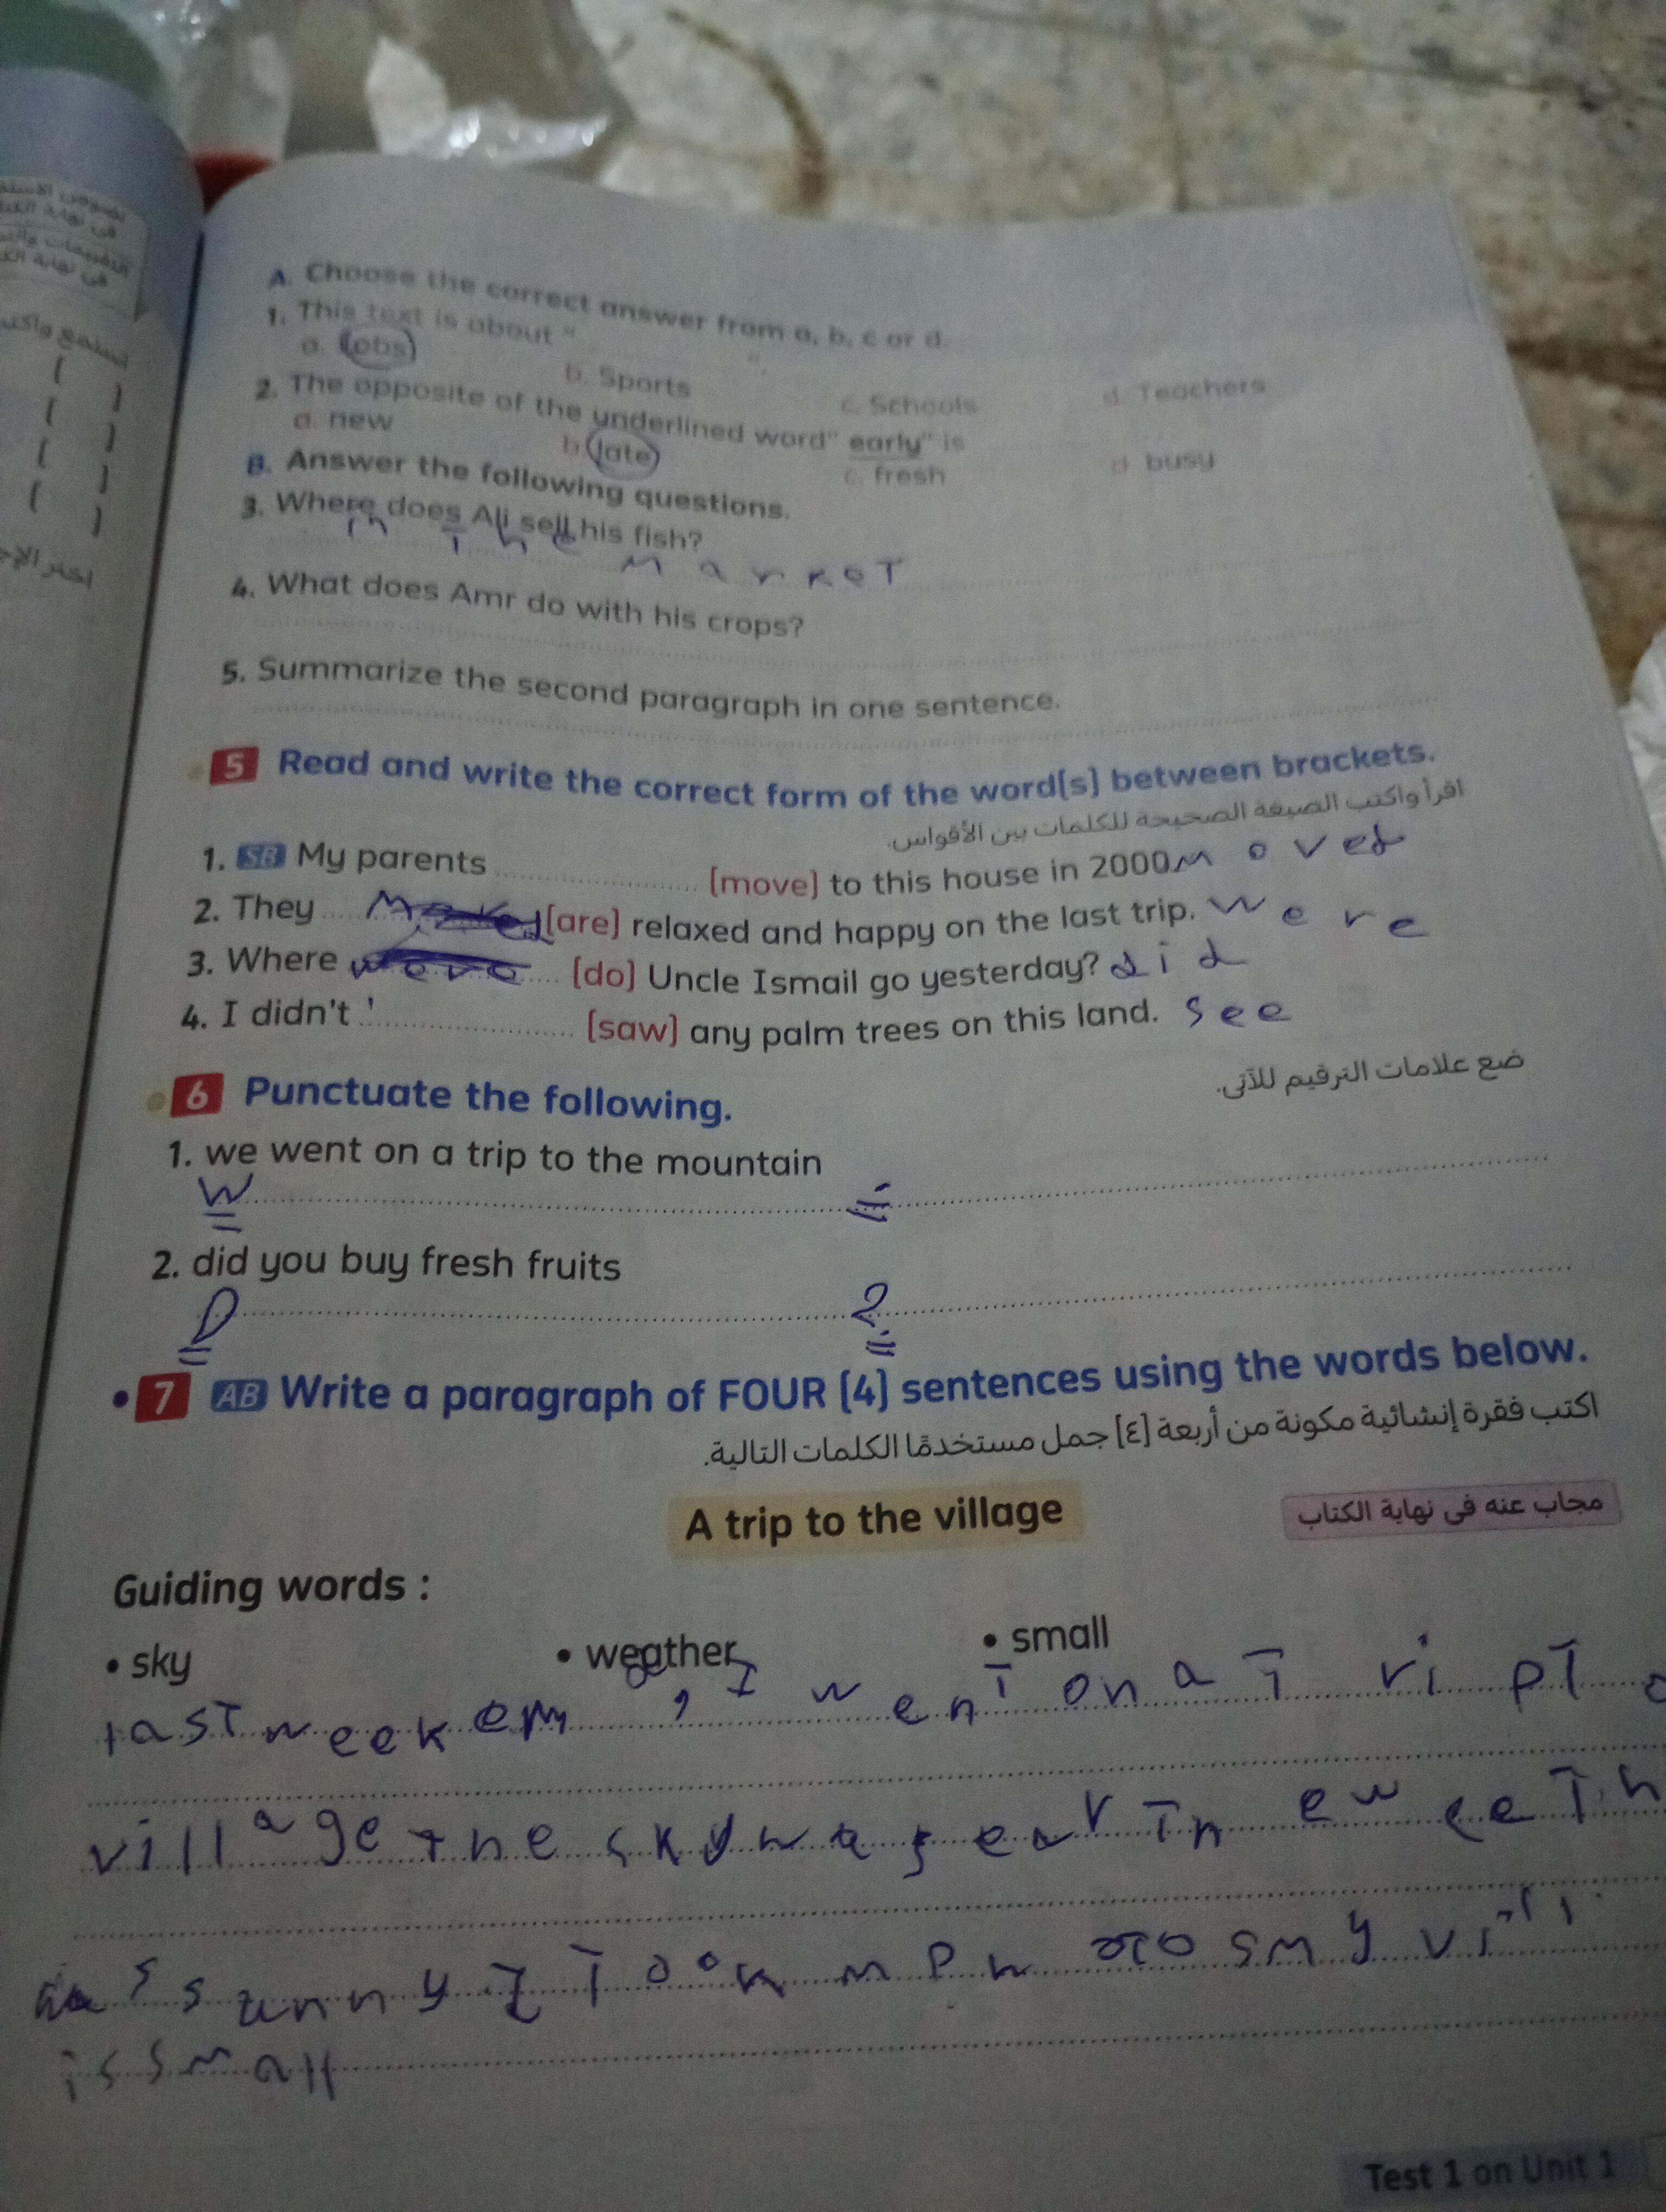 A. Choose the correct answer from a, b, c or d.
1. This text is about " ".
a. Jobs b. Sports c. Schools d. Teachers
2. The opposite of the underlined word" early" is
a. new b. late c. fresh d. busy
B. Answer the following questions.
3. Where does Ali sell his fish?
in The MarKeT
4. What does Amr do with his crops?
5. Summarize the second paragraph in one sentence.
5 Read and write the correct form of the word(s) between brackets.
اقرأ واكتب الصيغة الصحيحة للكلمات بين الأقواس.
1. SB My parents (move) to this house in 2000. moved
2. They (are) relaxed and happy on the last trip. were
3. Where (do) Uncle Ismail go yesterday? did
4. I didn't (saw) any palm trees on this land. See
6 Punctuate the following.
ضع علامات الترقيم للآتى.
1. we went on a trip to the mountain
W .
2. did you buy fresh fruits
D ?
7 AB Write a paragraph of FOUR (4) sentences using the words below.
اكتب فقرة إنشائية مكونة من أربعة [٤] جمل مستخدمًا الكلمات التالية.
A trip to the village
مجاب عنه فى نهاية الكتاب
Guiding words :
• sky • weather • small
last week , I wenT on a Trip To
village The sky was
sunny my
is small
Test 1 on Unit 1